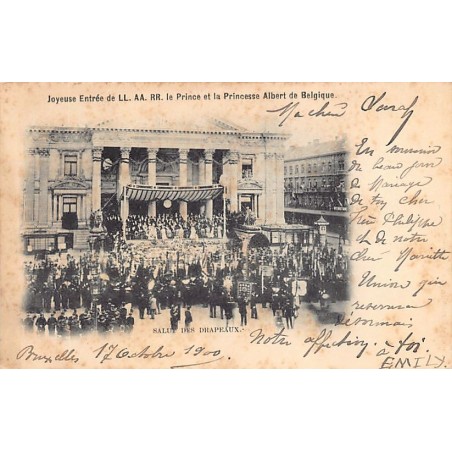 Joyeuse Entrée de LL. AA. RR. le Prince et la Princesse Albert de Belgique
Ma chère Sarah
En
du beau jour
de mariage
de ton cher
frère Philippe
et de notre
chère
Union que
désormais
Notre affection à toi
EMILY.
SALUT DES DRAPEAUX.
Bruxelles 17 Octobre 1900